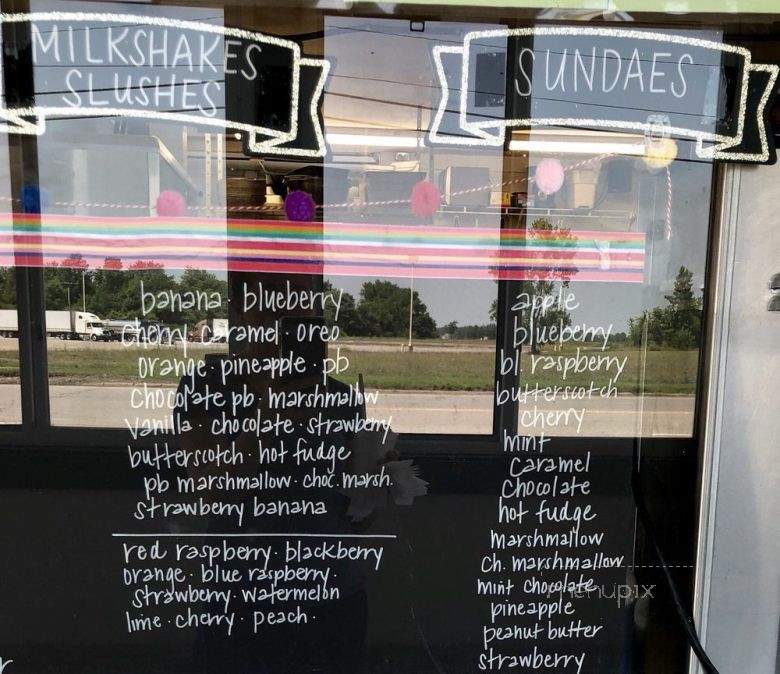 MILKSHAKES
SLUSHES
banana · blueberry
cherry · caramel · oreo
orange · pineapple · pb
chocolate pb · marshmallow
vanilla · chocolate · strawberry
butterscotch · hot fudge
pb marshmallow · choc. marsh.
strawberry banana
red raspberry · blackberry
orange · blue raspberry ·
strawberry · watermelon
lime · cherry · peach ·
SUNDAES
apple
blueberry
bl. raspberry
butterscotch
cherry
mint
caramel
chocolate
hot fudge
marshmallow
ch. marshmallow
mint chocolate
pineapple
peanut butter
strawberry
menupix